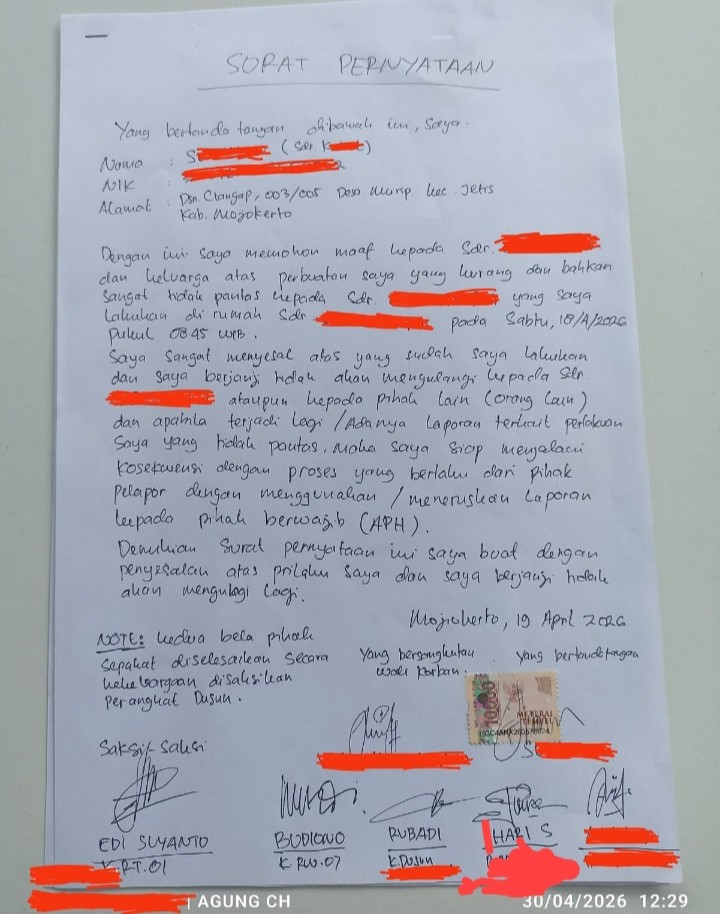 SURAT PERNYATAAN
Yang bertanda tangan dibawah ini, saya:
Nama : S (Sdr. K t)
NIK :
Alamat : Dsn. Clangap, 003/005 Desa Murip kec. Jetis
Kab. Mojokerto
Dengan ini saya memohon maaf kepada Sdr.
dan keluarga atas perbuatan saya yang kurang dan bahkan
sangat tidak pantas kepada Sdr. yang saya
lakukan di rumah Sdr pada Sabtu, 18/4/2026
Pukul 0845 WIB.
Saya sangat menyesal atas yang sudah saya lakukan
dan saya berjanji tidak akan mengulangi kepada Sdr.
ataupun kepada pihak lain (orang lain)
dan apabila terjadi lagi / Adanya Laporan terkait perlakuan
Saya yang tidak pantas, maka saya siap menjalani
kosekwensi dengan proses yang berlaku dari pihak
pelapor dengan menggunakan / meneruskan Laporan
kepada pihak berwajib (APH).
Demikian surat pernyataan ini saya buat dengan
penyesalan atas prilaku saya dan saya berjanji tidak
akan mengulagi lagi.
Mojokerto, 19 April 2026
NOTE: kedua bela pihak
sepakat diselesaikan secara
kekeluargaan disaksikan
perangkat Dusun.
Yang bersangkutan
wali korban.
yang bertandatangan
10000
METERAI
TEMPEL
Saksi-Saksi
EDI SUYANTO
K.RT.01
BUDIONO
K.RW.07
RUBADI
K.Dusun
HARI S
AGUNG CH
30/04/2026 12:29